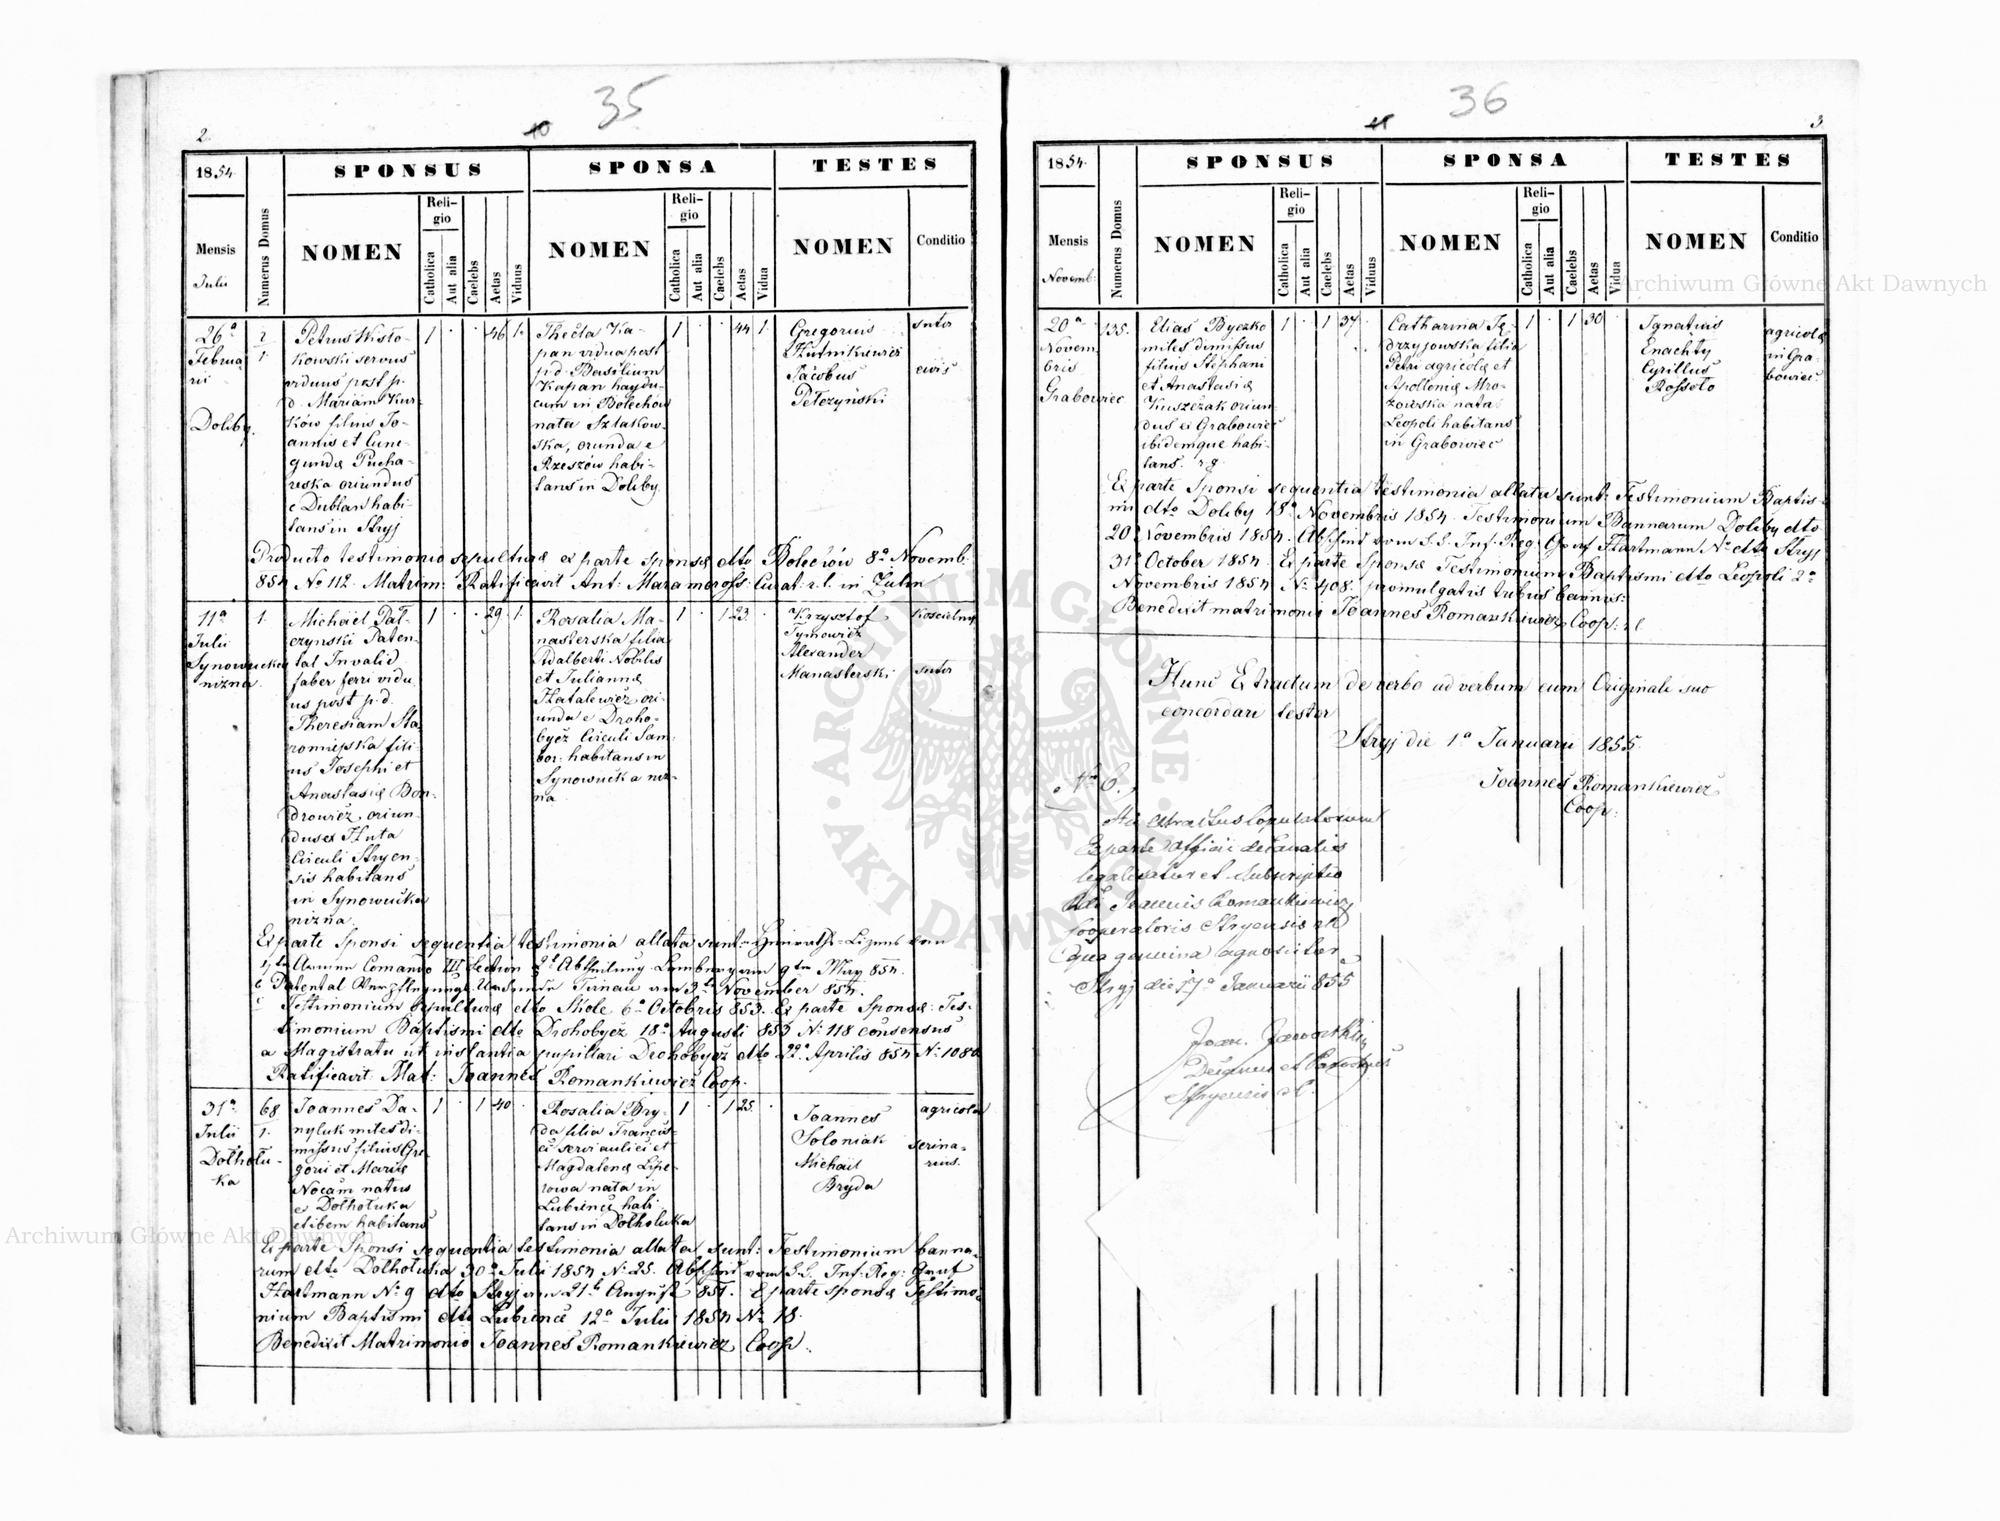 35
2.
40
1854.
SPONSUS
SPONSA
TESTES
Mensis
Julii
Numerus Domus
NOMEN
Religio
Catholica
Aut alia
Caelebs
Aetas
Viduus
NOMEN
Religio
Catholica
Aut alia
Caelebs
Aetas
Vidua
NOMEN
Conditio
26a
Februa
rii
Doliby.
2
1.
Petrus Wisło-
kowski servus
viduus post p.
d. Mariam Kur-
ków filius Jo-
annis et Cune-
gundæ Pucha-
reska oriundus
e Dublan habi-
tans in Stryj
1 . . 46 1.
Thecla Ka-
pan vidua post
p.d. Basilium
Kapan haydu-
cum in Bolechów
nata Szlakow-
ska, orunda e
Rzeszów habi-
tans in Doliby.
1 . . 44 1.
Gregorius
Hutnikiewicz
Jacobus
Pełczyński
sutor
civis
Producto testimonio sepulturæ ex parte sponsæ dto Bolechów 8a Novemb.
854 No 112. Matrim: Ratificavit Ant: Maramoross: Curat: r.l. in Zulin
11a
Julii
Synowucka
nizna.
1.
Michael Pał-
czynski Paten-
tal Invalid
faber ferri vidu
us post p.d.
Theresiam Sta
romiejska fili-
us Josephi et
Anastasiæ Bon-
drowicz, oriun-
dus ex Huta
Circuli Stryen-
sis habitans
in Synowucka
nizna.
1 . . 29 1.
Rosalia Ma-
nasterska filia
Adalberti Nobilis
et Juliannæ
Hatalewicz ori-
unda e Droho-
bycz Circuli Sam-
bor: habitans in
Synowucka niz-
na.
1 . 1 23.
Krzysztof
Tymowicz
Alexander
Manasterski
Koscielny
sutor
Ex parte Sponsi sequentia testimonia allata sunt: Heiraths-Lizens vom
Armee Comando III Section Abtheilung Lemberg am 9ten May 854.
Patental Urkunde Tirnau am 3ten November 854.
Testimonium Sepulturæ dto Skole 6a Octobris 853. Ex parte Sponsæ: Tes-
timonium Baptismi dto Drohobycz 18a Augusti 853 No 118 consensus
a Magistratu ut instantia pupillari Drohobycz dto 22a Aprilis 854 No 1080.
Ratificavit Mat: Joannes Romankiewicz Coop.
31a
Julii
Dołhołu-
ka
68
1.
Joannes Da-
nyluk miles di-
missus filius Gre
gorii et Mariæ
Nocam natus
e Dołhołuka
et ibem habitans
1 . 1 40 .
Rosalia Bry-
da filia Francis-
ci servi aulici et
Magdalenæ Lipe-
rowa nata in
Lubience habi
tans in Dołholuka
1 . 1 25. .
Joannes
Soloniak
Michail
Bryda
agricola
scrina-
rius.
Ex parte Sponsi sequentia testimonia allata sunt: Testimonium banna-
rum dto Dołhołuka 30a Julii 1854 No 25. Abschied vom Inf: Reg: Graf
Hartmann No 9 dto Stryj am 21t August 851. Ex parte sponsæ Testimo-
nium Baptismi dto Lubience 12a Julii 1854 No 18.
Benedixit Matrimonio Joannes Romankiewicz Coop.
36
41
3
1854.
SPONSUS
SPONSA
TESTES
Mensis
Novemb:
Numerus Domus
NOMEN
Religio
Catholica
Aut alia
Caelebs
Aetas
Viduus
NOMEN
Religio
Catholica
Aut alia
Caelebs
Aetas
Vidua
NOMEN
Conditio
20a
Novem
bris
Grabowiec
135.
Elias Byczko
miles dimissus
filius Stephani
et Anastasiæ
Kuszczak oriun-
dus ex Grabowiec
ibidemque habi-
tans. r.g.
1 . 1 37 .
Catharina Ję-
drzyjowska filia
Petri agricolæ et
Apolloniæ Mro-
zowska nata
Leopoli habitans
in Grabowiec
1 . 1 30 .
Ignatius
Enachty
Cyrillus
Rossoto
agricolæ
in Gra-
bowiec.
Ex parte Sponsi sequentia testimonia allata sunt: Testimonium Baptis-
mi dto Doliby 18a Novembris 1854. Testimonium Bannarum Doliby dto
20 Novembris 1854. Abschied vom Inf: Reg: Graf Hartmann No dto Stryj
31 October 1854. Ex parte Sponsæ Testimonium Baptismi dto Leopoli 2a
Novembris 1854 No 408. promulgatis tribus bannis:
Benedixit matrimonio Joannes Romankiewicz Coop: r.l.
Hunc Extractum de verbo ad verbum cum Originale suo
concordari testor
Stryj die 1a Januarii 1855.
Joannes Romankiewicz
Coop:
No 6.
Hic extractus Copulatorum
Ex parte Officii decanalis
legalisatur et subscriptio
Joannis Romankiewicz
Cooperatoris Stryensis
qua genuina agnoscitur
Stryj die 17a Januarii 855
Joan. Jaworski
Decanus et Parochus
Stryensis
Archiwum Główne Akt Dawnych
ARCHIWUM GŁÓWNE AKT DAWNYCH
Archiwum Główne Akt Dawnych